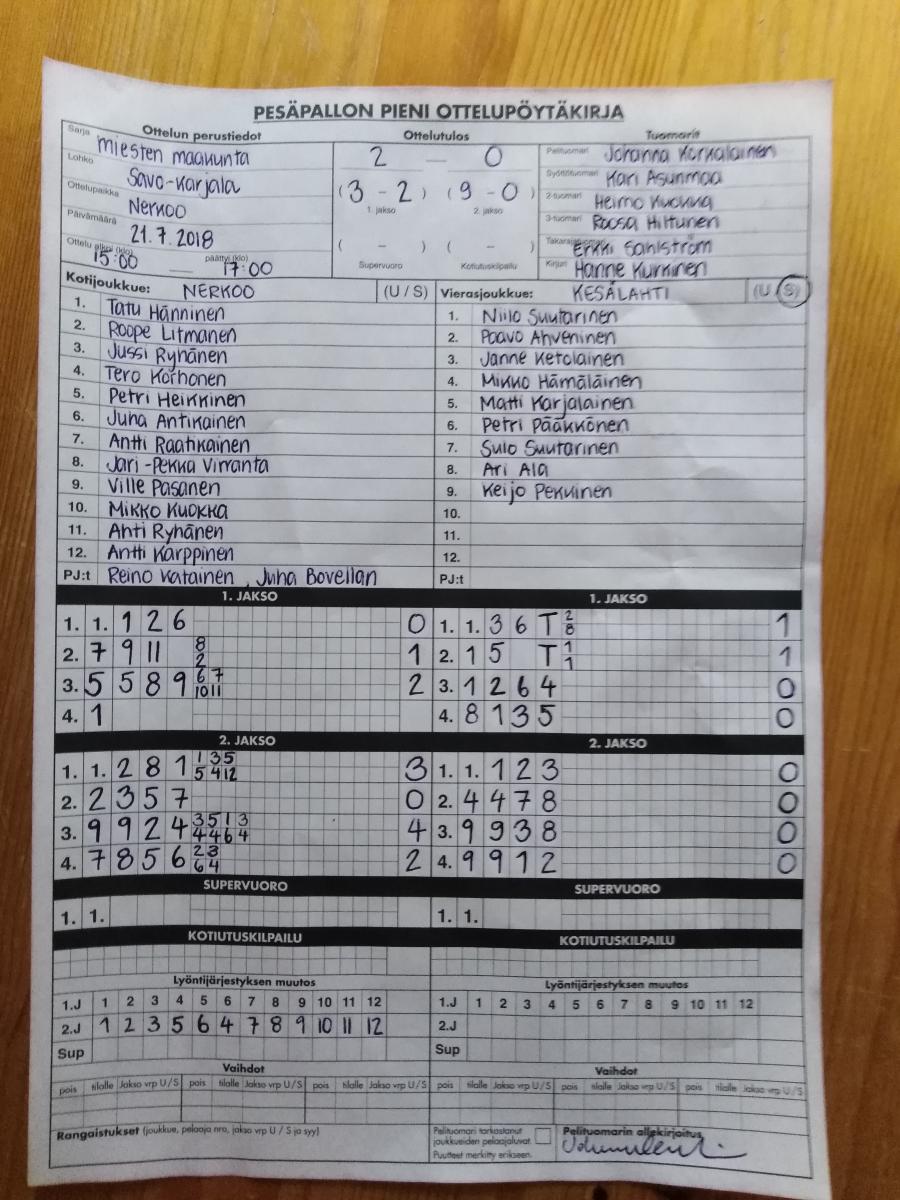 PESÄPALLON PIENI OTTELUPÖYTÄKIRJA
Ottelun perustiedot
Sarja miesten maakunta
Lohko Savo-Karjala
Ottelupaikka Nerkoo
Päivämäärä 21.7.2018
Ottelu alkoi (klo) 15:00 — päättyi (klo) 17:00
Ottelutulos
2 — 0
(3 - 2) (9 - 0)
1. jakso 2. jakso
( - ) ( - )
Supervuoro Kotiutuskilpailu
Tuomarit
Pelituomari Johanna Korkalainen
Syöttötuomari Kari Asunmaa
2-tuomari Heimo Kuokka
3-tuomari Roosa Hiltunen
Takarajatuomari Erkki Sahlström
Kirjuri Hanne Kurkinen
Kotijoukkue: NERKOO (U / S)
1. Tatu Hänninen
2. Roope Litmanen
3. Jussi Ryhänen
4. Tero Korhonen
5. Petri Heikkinen
6. Juha Antikainen
7. Antti Raatikainen
8. Jari-Pekka Virranta
9. Ville Pasanen
10. Mikko Kuokka
11. Ahti Ryhänen
12. Antti Karppinen
PJ:t Reino Katainen, Juha Bovellan
Vierasjoukkue: KESÄLAHTI (U / S)
1. Niilo Suutarinen
2. Paavo Ahveninen
3. Janne Ketolainen
4. Mikko Hämäläinen
5. Matti Karjalainen
6. Petri Pääkkönen
7. Sulo Suutarinen
8. Ari Ala
9. Keijo Pekkinen
10.
11.
12.
PJ:t
1. JAKSO
1. 1. 1 2 6 0
2. 7 9 11 8 2 1
3. 5 5 8 9 6 7 10 11 2
4. 1
1. JAKSO
1. 1. 3 6 T 2 8 1
2. 1 5 T 1 1 1
3. 1 2 6 4 0
4. 8 1 3 5 0
2. JAKSO
1. 1. 2 8 1 1 3 5 5 4 12 3
2. 2 3 5 7 0
3. 9 9 2 4 3 5 1 3 4 4 6 4 4
4. 7 8 5 6 2 3 6 4 2
2. JAKSO
1. 1. 1 2 3 0
2. 4 4 7 8 0
3. 9 9 3 8 0
4. 9 9 1 2 0
SUPERVUORO
1. 1.
SUPERVUORO
1. 1.
KOTIUTUSKILPAILU
KOTIUTUSKILPAILU
Lyöntijärjestyksen muutos
1.J 1 2 3 4 5 6 7 8 9 10 11 12
2.J 1 2 3 5 6 4 7 8 9 10 11 12
Sup
Lyöntijärjestyksen muutos
1.J 1 2 3 4 5 6 7 8 9 10 11 12
2.J
Sup
Vaihdot
pois tilalle Jakso vrp U/S pois tilalle Jakso vrp U/S pois tilalle Jakso vrp U/S
Vaihdot
pois tilalle Jakso vrp U/S pois tilalle Jakso vrp U/S pois tilalle Jakso vrp U/S
Rangaistukset (joukkue, pelaaja nro, jakso vrp U / S ja syy)
Pelituomari tarkastanut
joukkueiden pelaajaluvat.
Puutteet merkitty erikseen.
Pelituomarin allekirjoitus